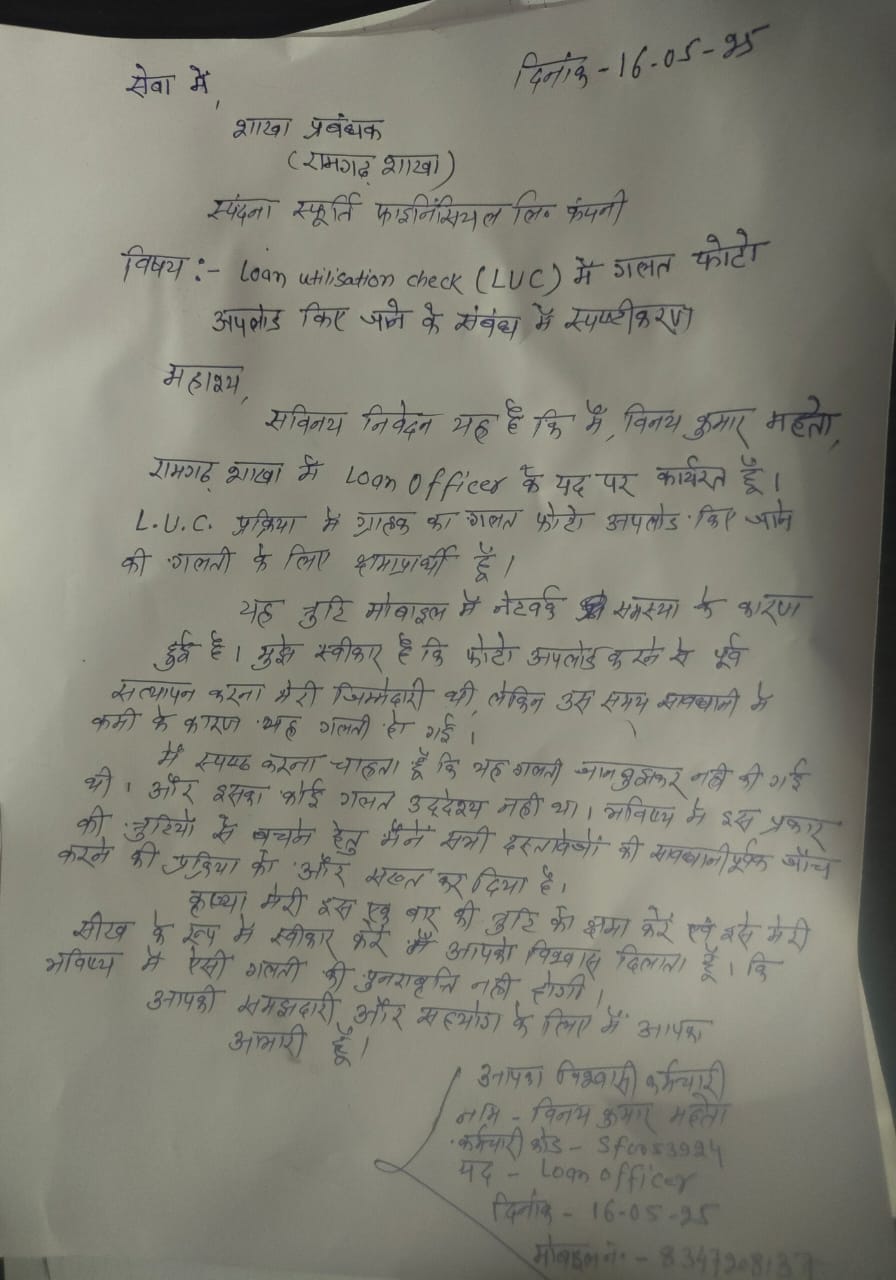 दिनांक - 16-05-25
सेवा में,
शाखा प्रबंधक
(रामगढ़ शाखा)
स्पंदना स्फूर्ति फाइनिंसियल लि॰ कंपनी
विषय :- Loan utilisation check (LUC) में गलत फोटो
अपलोड किए जाने के संबंध में स्पष्टीकरण
महाश्य,
सविनय निवेदन यह है कि मैं, विनय कुमार महतो,
रामगढ़ शाखा में Loan Officer के पद पर कार्यरत हूँ।
L.U.C. प्रक्रिया में ग्राहक का गलत फोटो अपलोड किए जाने
की गलती के लिए क्षमाप्रार्थी हूँ।
यह त्रुटि मोबाइल में नेटवर्क समस्या के कारण
हुई है। मुझे स्वीकार है कि फोटो अपलोड करने से पूर्व
सत्यापन करना मेरी जिम्मेदारी थी, लेकिन उस समय सावधानी में
कमी के कारण यह गलती हो गई।
मैं स्पष्ट करना चाहता हूँ कि यह गलती जानबुझकर नही की गई
थी। और इसका कोई गलत उद्देश्य नही था। भविष्य में इस प्रकार
की त्रुटियों से बचने हेतु मैंने सभी दस्तावेजों की सावधानीपूर्वक जाँच
करने की प्रक्रिया को और सख्त कर दिया है।
कृप्या मेरी इस एक बार की त्रुटि को क्षमा करें एवं इसे मेरी
सीख के रूप में स्वीकार करें मैं आपको विश्वास दिलाता हूँ। कि
भविष्य में ऐसी गलती की पुनरावृत्ति नही होगी।
आपकी समझदारी और सहयोग के लिए मैं आपका
आभारी हूँ।
आपका विश्वासी कर्मचारी
नाम - विनय कुमार महतो
कर्मचारी कोड - Sf0053924
पद - Loan officer
दिनांक - 16-05-25
मोबाइल नं॰ -